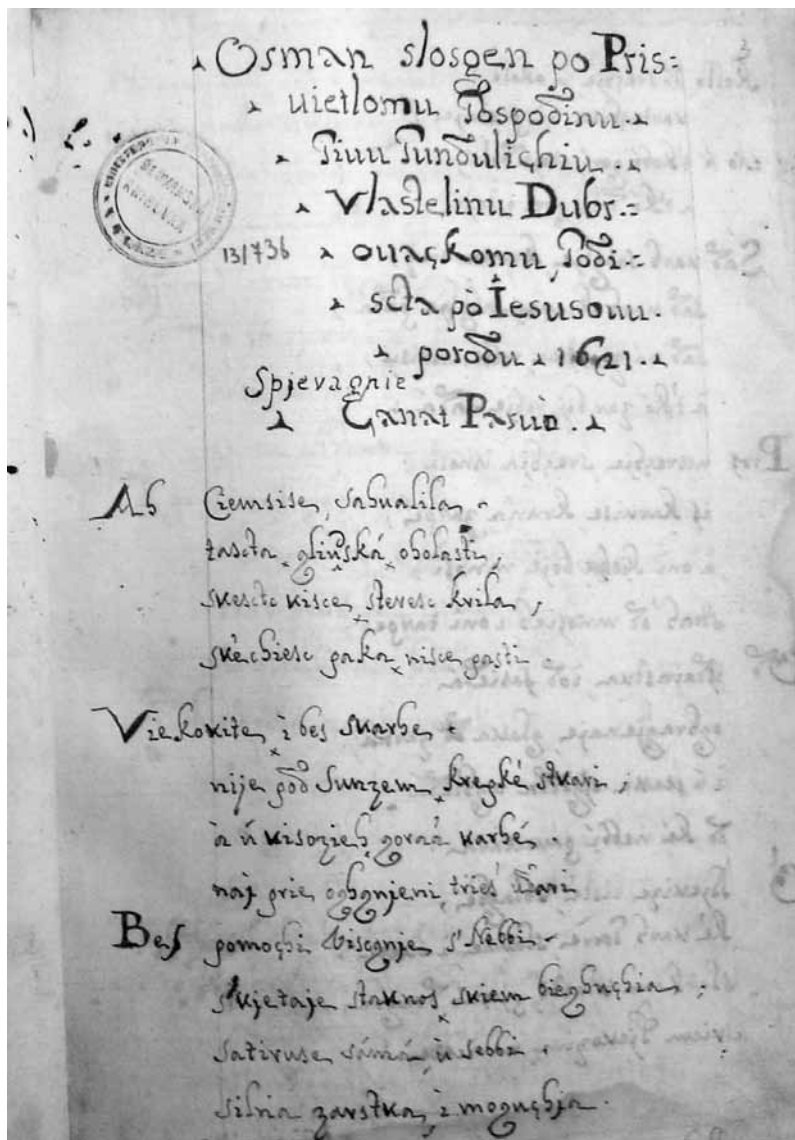 Osman slosgen po Pris:
uietlomu Gospodinu.
Giuu Gundulichiu.
Vlastelinu Dubr.:
ouaçkomu, Godi:
scta pò Iesusouu.
13/736
porodu. 1621.
Spjevagnie
Canat Paruo.
Ah Ciemsise, sahualila.
tascta gliuskà oholasti,
skesctovisce, steresc krila,
skechiesc paka, nisce pasti.
Viekovite, i bes svarhe.
nije pod Sunzem, krepkè stvari,
à ù visozieh, goraà varhè.
naj prie, ogbgnjeni trjes udari
Bes pomochi Visegnje, s'Nebbi.
svjetaje staknos, skiem bieghuchia,
satiruse sáma, ù sebbi.
silna zarstva, i moguchia.